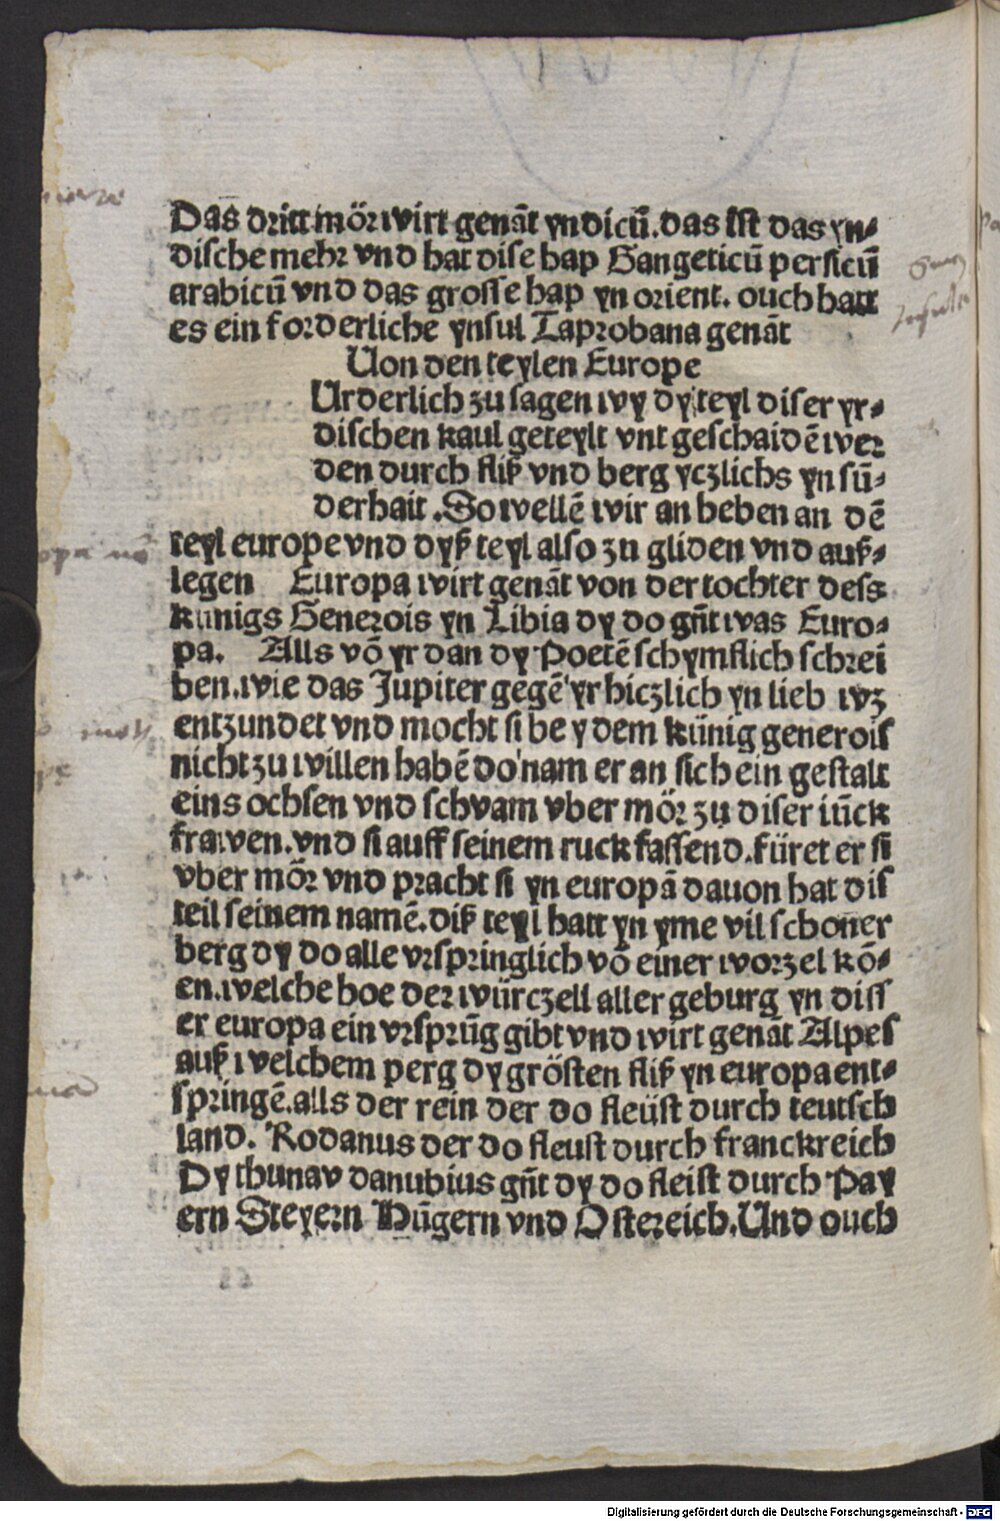 Das dritt mör wirt genāt yndicū. das ist das yn-
dische mehr vnd hat dise hap Gangeticū persicū
arabicū vnd das grosse hap yn orient. ouch hatt
es ein forderliche ynsul Taprobana genāt
Uon den teylen Europe
Urderlich zu sagen wy dy teyl diser yr-
dischen kaul geteylt vnt geschaidē wer
den durch fliß vnd berg yczlichs yn sū-
derhait. So wellē wir an heben an dē
teyl europe vnd dyß teyl also zu gliden vnd auß-
legen Europa wirt genāt von der tochter dess
kunigs Generois yn Libia dy do gn̄t was Euro-
pa. Alls vō yr dan dy Poetē schymflich schrei
ben. wie das Jupiter gegē yr hiczlich yn lieb wz
entzundet vnd mocht si be y dem kūnig generois
nicht zu willen habē do nam er an sich ein gestalt
eins ochsen vnd schvam vber mör zu diser iūck
frawen. vnd si auff seinem ruck fassend. füret er si
vber mör vnd pracht si yn europā dauon hat dis
teil seinem namē. diß teyl hatt yn yme vil schoner
berg dy do alle vrspringlich vō einer worzel kō-
en. welche hoe der würczell aller geburg yn diss
er europa ein vrsprūg gibt vnd wirt genāt Alpes
auß welchem perg dy grösten fliß yn europa ent-
springē. alls der rein der do fleüst durch teutsch
land. Rodanus der do fleust durch franckreich
Dy thunav danubius gn̄t dy do fleist durch Pay
ern Steyern Hūgern vnd Ostereich. Und ouch
Digitalisierung gefördert durch die Deutsche Forschungsgemeinschaft - DFG